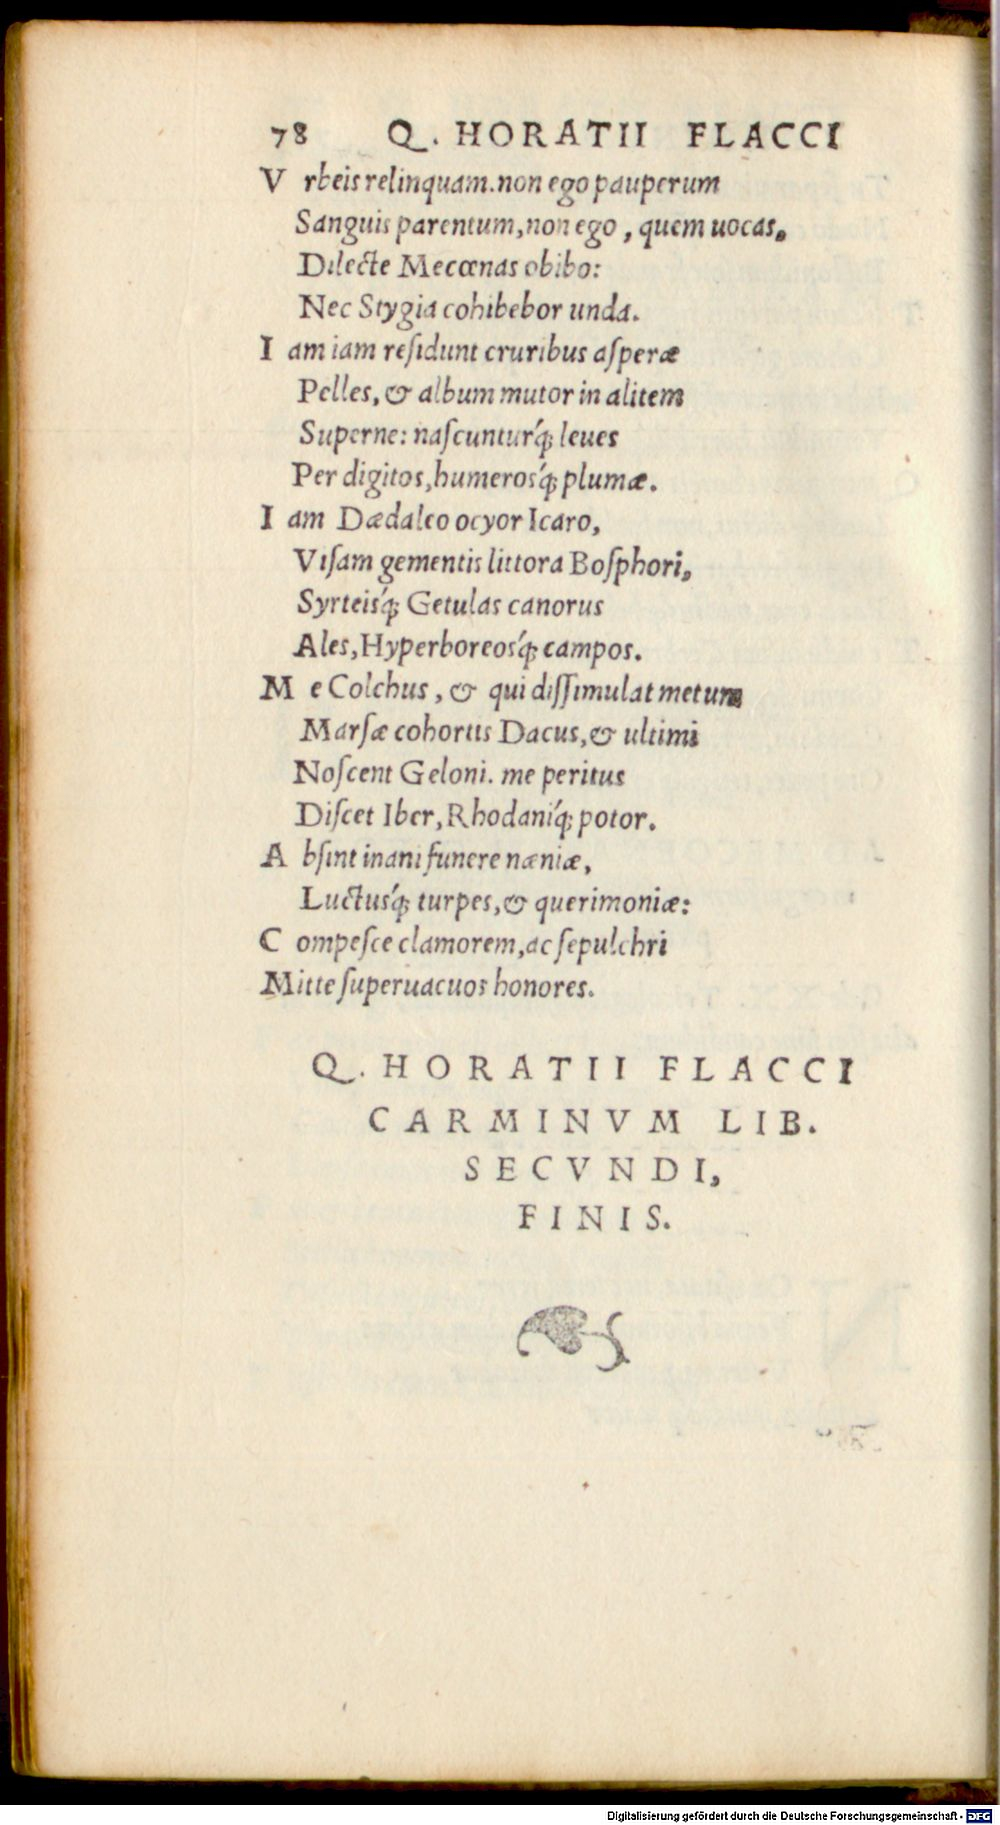 78 Q. HORATII FLACCI
V rbeis relinquam. non ego pauperum
Sanguis parentum, non ego, quem uocas,
Dilecte Mecœnas obibo:
Nec Stygia cohibebor unda.
I am iam reſidunt cruribus aſperæ
Pelles, & album mutor in alitem
Superne: naſcunturq́; leues
Per digitos, humerosq́; plumæ.
I am Dædaleo ocyor Icaro,
Viſam gementis littora Boſphori,
Syrteisq́; Getulas canorus
Ales, Hyperboreosq́; campos.
M e Colchus, & qui diſſimulat metum
Marſæ cohortis Dacus, & ultimi
Noſcent Geloni. me peritus
Diſcet Iber, Rhodaniq́; potor.
A bſint inani funere næniæ,
Luctusq́; turpes, & querimoniæ:
C ompeſce clamorem, ac ſepulchri
Mitte ſuperuacuos honores.
Q. HORATII FLACCI
CARMINVM LIB.
SECVNDI,
FINIS.
Digitalisierung gefördert durch die Deutsche Forschungsgemeinschaft - DFG